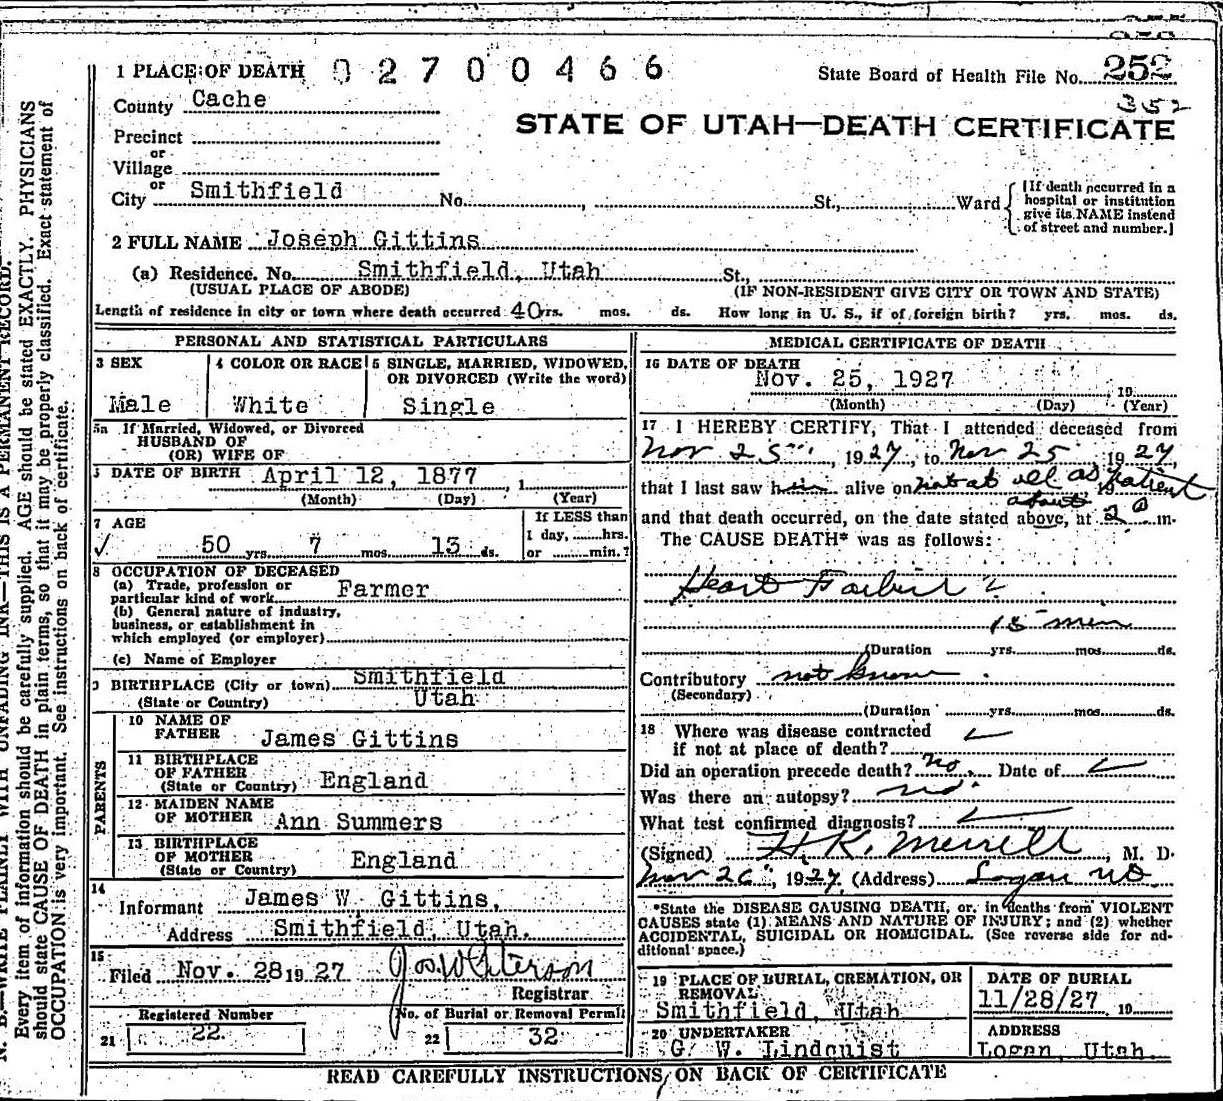 1 PLACE OF DEATH 02700466
State Board of Health File No. 252
352
County Cache
STATE OF UTAH—DEATH CERTIFICATE
Precinct
or
Village
or
City Smithfield No. , St., Ward
[If death occurred in a
hospital or institution
give its NAME instead
of street and number.]
2 FULL NAME Joseph Gittins
(a) Residence. No. Smithfield, Utah St.,
(USUAL PLACE OF ABODE) (IF NON-RESIDENT GIVE CITY OR TOWN AND STATE)
Length of residence in city or town where death occurred 40 yrs. mos. ds. How long in U. S., if of foreign birth? yrs. mos. ds.
PERSONAL AND STATISTICAL PARTICULARS
3 SEX
Male
4 COLOR OR RACE
White
5 SINGLE, MARRIED, WIDOWED,
OR DIVORCED (Write the word)
Single
5a If Married, Widowed, or Divorced
HUSBAND OF
(OR) WIFE OF
DATE OF BIRTH April 12, 1877 , 1
(Month) (Day) (Year)
7 AGE
✓ 50 yrs. 7 mos. 13 ds.
If LESS than
1 day, hrs.
or min.?
8 OCCUPATION OF DECEASED
(a) Trade, profession or
particular kind of work Farmer
(b) General nature of industry,
business, or establishment in
which employed (or employer)
(c) Name of Employer
9 BIRTHPLACE (City or town) Smithfield
(State or Country) Utah
PARENTS
10 NAME OF
FATHER James Gittins
11 BIRTHPLACE
OF FATHER
(State or Country) England
12 MAIDEN NAME
OF MOTHER Ann Summers
13 BIRTHPLACE
OF MOTHER
(State or Country) England
14
Informant James W. Gittins,
Address Smithfield, Utah.
15
Filed Nov. 28 19 27
Registrar
21 Registered Number
22
22 No. of Burial or Removal Permit
32
MEDICAL CERTIFICATE OF DEATH
16 DATE OF DEATH
Nov. 25, 1927 , 19
(Month) (Day) (Year)
17 I HEREBY CERTIFY, That I attended deceased from
Nov 25 , 1927, to Nov 25 1927,
that I last saw him alive on not at all as patient 19
about
and that death occurred, on the date stated above, at 2 m.
The CAUSE DEATH* was as follows:
Heart
15 min
(Duration yrs. mos. ds.
Contributory not know
(Secondary)
(Duration yrs. mos. ds.
18 Where was disease contracted
if not at place of death? ✓
Did an operation precede death? no Date of ✓
Was there an autopsy? no
What test confirmed diagnosis? ✓
(Signed) H. K. Merrell, M. D.
Nov 26, 1927 (Address) Logan
*State the DISEASE CAUSING DEATH, or, in deaths from VIOLENT
CAUSES state (1) MEANS AND NATURE OF INJURY; and (2) whether
ACCIDENTAL, SUICIDAL OR HOMICIDAL. (See reverse side for ad-
ditional space.)
19 PLACE OF BURIAL, CREMATION, OR
REMOVAL
Smithfield, Utah
DATE OF BURIAL
11/28/27 19
20 UNDERTAKER
G. W. Lindquist
ADDRESS
Logan, Utah
READ CAREFULLY INSTRUCTIONS ON BACK OF CERTIFICATE
N. B.—WRITE PLAINLY WITH UNFADING INK—THIS IS A PERMANENT RECORD.
Every item of information should be carefully supplied. AGE should be stated EXACTLY. PHYSICIANS
should state CAUSE OF DEATH in plain terms, so that it may be properly classified. Exact statement of
OCCUPATION is very important. See instructions on back of certificate.